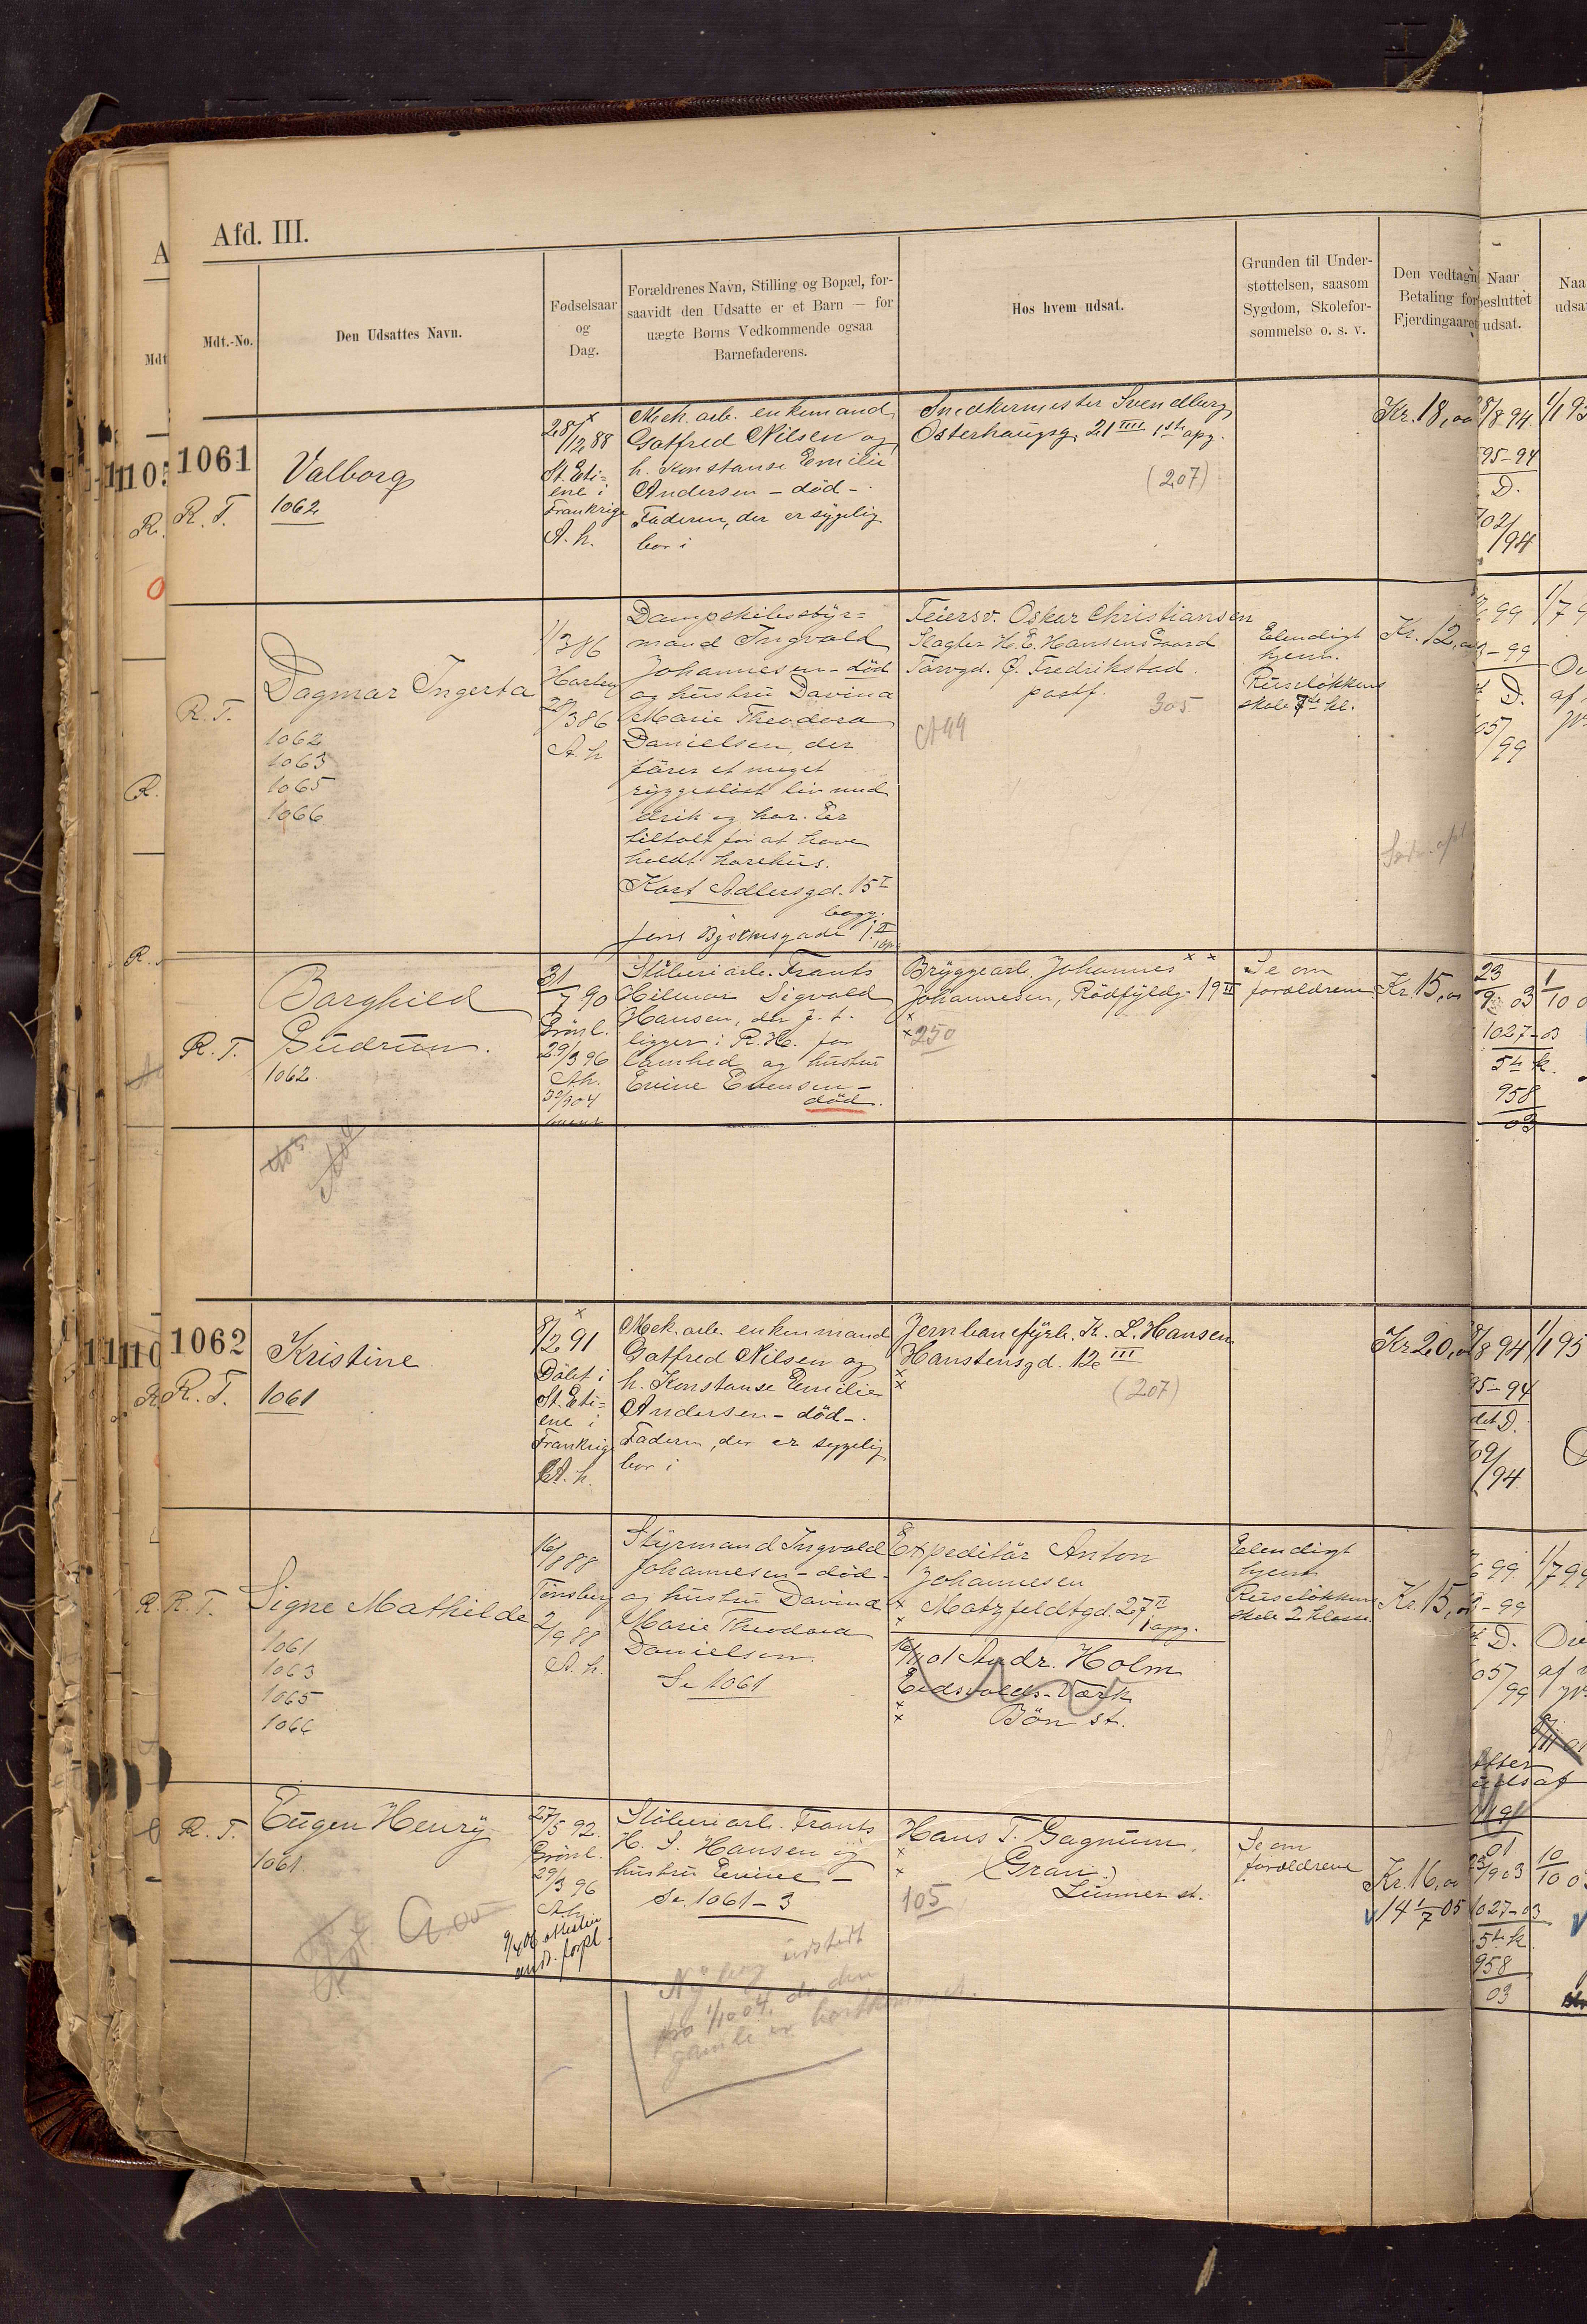 Afd. III.
Mdt.-No.
Den Udsattes Navn.
Fødselsaar
og
Dag.
Forældrenes Navn, Stilling og Bopæl, for-
saavidt den Udsatte er et Barn — for
uægte Børns Vedkommende ogsaa
Barnefaderens.
Hos hvem udsat.
Grunden til Under-
støttelsen, saasom
Sygdom, Skolefor-
sømmelse o. s. v.
Den vedtagn
Betaling for
Fjerdingaaret
Naar
besluttet
udsat.
Naa
udsat
1061
R. T.
Valborg
1062
28/12 88
St. Eti-
ene i
Frankrige
A. h.
Mek. arb. enkemand
Gotfred Nilsen og
h. Konstanse Emilie
Andersen - död -.
Faderen, der er sygelig
bor i
Snedkermester Svendberg
Osterhaugsg. 21 IIII 1ste opg.
(207)
Kr. 18,00
8/8 94
1/1 95
95-94
D.
702/94
R. T.
Dagmar Ingerta
1062
1063
1065
1066
1/3 86
Horten
A. h
Dampskibsstyr-
mand Ingvald
Johannesen - död
og hustru Davina
Marie Theodora
Danielsen, der
fører et meget
ryggesløst liv med
drik og hor. Er
tiltalt for at have
holdt horehus.
Kort Adlersgd. 15 I
bagg.
Jens Bjelkesgade 1 II
Feiersv. Oskar Christiansen
Slagter H. E. Hansens Gaard
Torvgd. Ø. Fredrikstad
postf.
305
A 99
Elendigt
hjem.
Ruseløkkens
skole 7de kl.
Kr. 12,00
99
1/7 9
3-99
D.
05/99
R. T.
Borghild
Gudrun.
1062
31/7 90
Grönl.
29/3 96
A.h.
30/3 04
Støberiarb. Frants
Hilmar Sigvald
Hansen, der p. t.
ligger i R. H. for
lamhed og hustru
Evine Evensen -
död.
Bryggearb. Johannes
Johannesen, Rödfyldg. 19 II
250
Se om
forældrene
Kr. 15,00
23/9 03
1/10 0
1027-03
5te k.
958
03
1062
R. T.
Kristine
1061
8/12 91
Döbt i
St. Eti-
ene i
Frankrige
A. h.
Mek. arb. enkemand
Gotfred Nilsen og
h. Konstanse Emilie
Andersen - död -.
Faderen, der er sygelig
bor i
Jernbanefyrb. K. L. Hansen
Hanstensgd. 12 III
(207)
Kr. 20,00
8/8 94
1/1 95
95-94
D.
702/94
R. T.
Signe Mathilde
1061
1063
1065
1066
16/8 88
Tönsberg
2/9 88
A. h.
Styrmand Ingvald
Johannesen - död -
og hustru Davina
Marie Theodora
Danielsen.
Se 1061
Expeditör Anton
Johannesen
Motzfeldtgd. 27 II
1 opg.
Andr. Holm
Eidsvolds-Værk
Bön st.
Elendigt
hjem
Ruseløkkens
skole 2 klasse
Kr. 15,00
99
1/7 99
3-99
D.
05/99
udsat
R. T.
Eugen Henry
1061
27/5 92.
Grönl.
29/3 96
A.h.
Støberiarb. Frants
H. S. Hansen og
hustru Evine -
Se 1061-3
Hans T. Gagnum
(Gran.)
Lunner st.
105
Se om
forældrene
Kr. 16,00
14 1/7 05
23/9 03
1027-03
5te k
958
03
Ny bog udstedt
fra 1/10 04, da den
gamle er bortkommet.